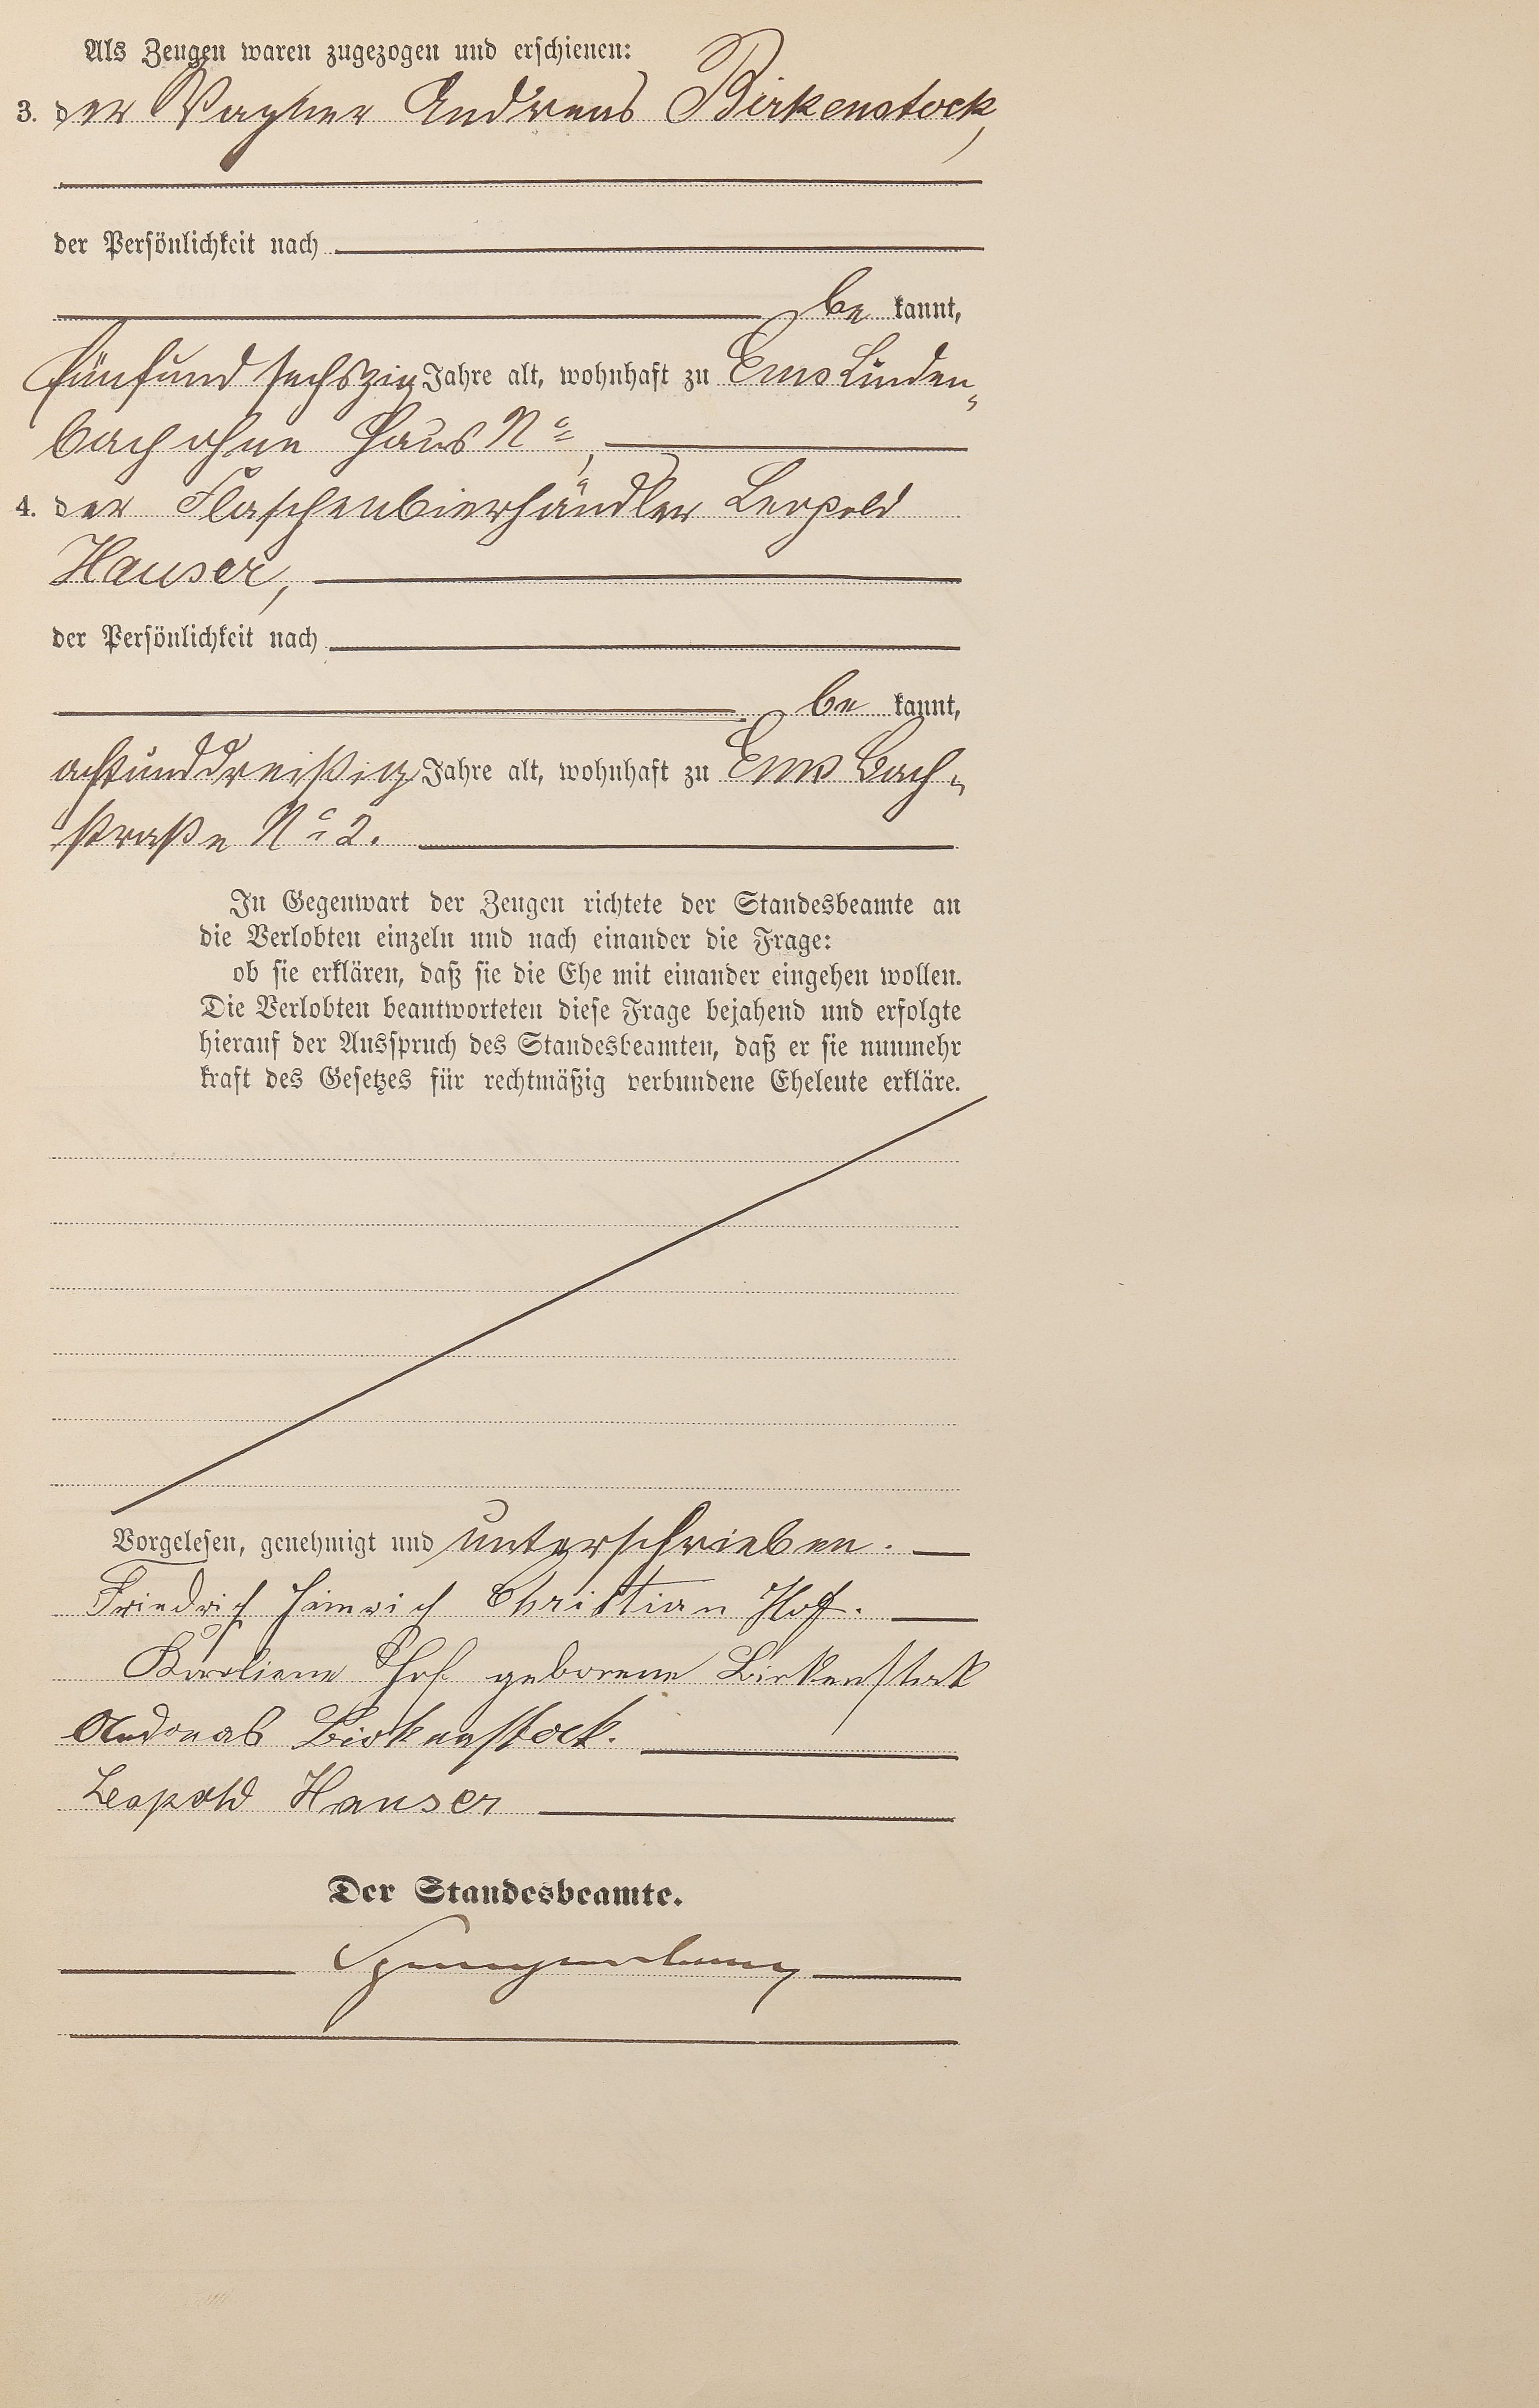 Als Zeugen waren zugezogen und erschienen:
3. der Wagner Andreas Birkenstock,
der Persönlichkeit nach
be kannt,
fünfund sechszig Jahre alt, wohnhaft zu Ems Linden-
bach ohne Haus No,
4. der Flaschenbierhändler Leopold
Hauser,
der Persönlichkeit nach
be kannt,
achtunddreißig Jahre alt, wohnhaft zu Ems Bach-
straße No 2.
In Gegenwart der Zeugen richtete der Standesbeamte an
die Verlobten einzeln und nach einander die Frage:
ob sie erklären, daß sie die Ehe mit einander eingehen wollen.
Die Verlobten beantworteten diese Frage bejahend und erfolgte
hierauf der Ausspruch des Standesbeamten, daß er sie nunmehr
kraft des Gesetzes für rechtmäßig verbundene Eheleute erkläre.
Vorgelesen, genehmigt und unterschrieben.
Friedrich Heinrich Christian Hof.
Karoliene Hof geborene Birkenstock
Andreas Birkenstock.
Leopold Hauser
Der Standesbeamte.